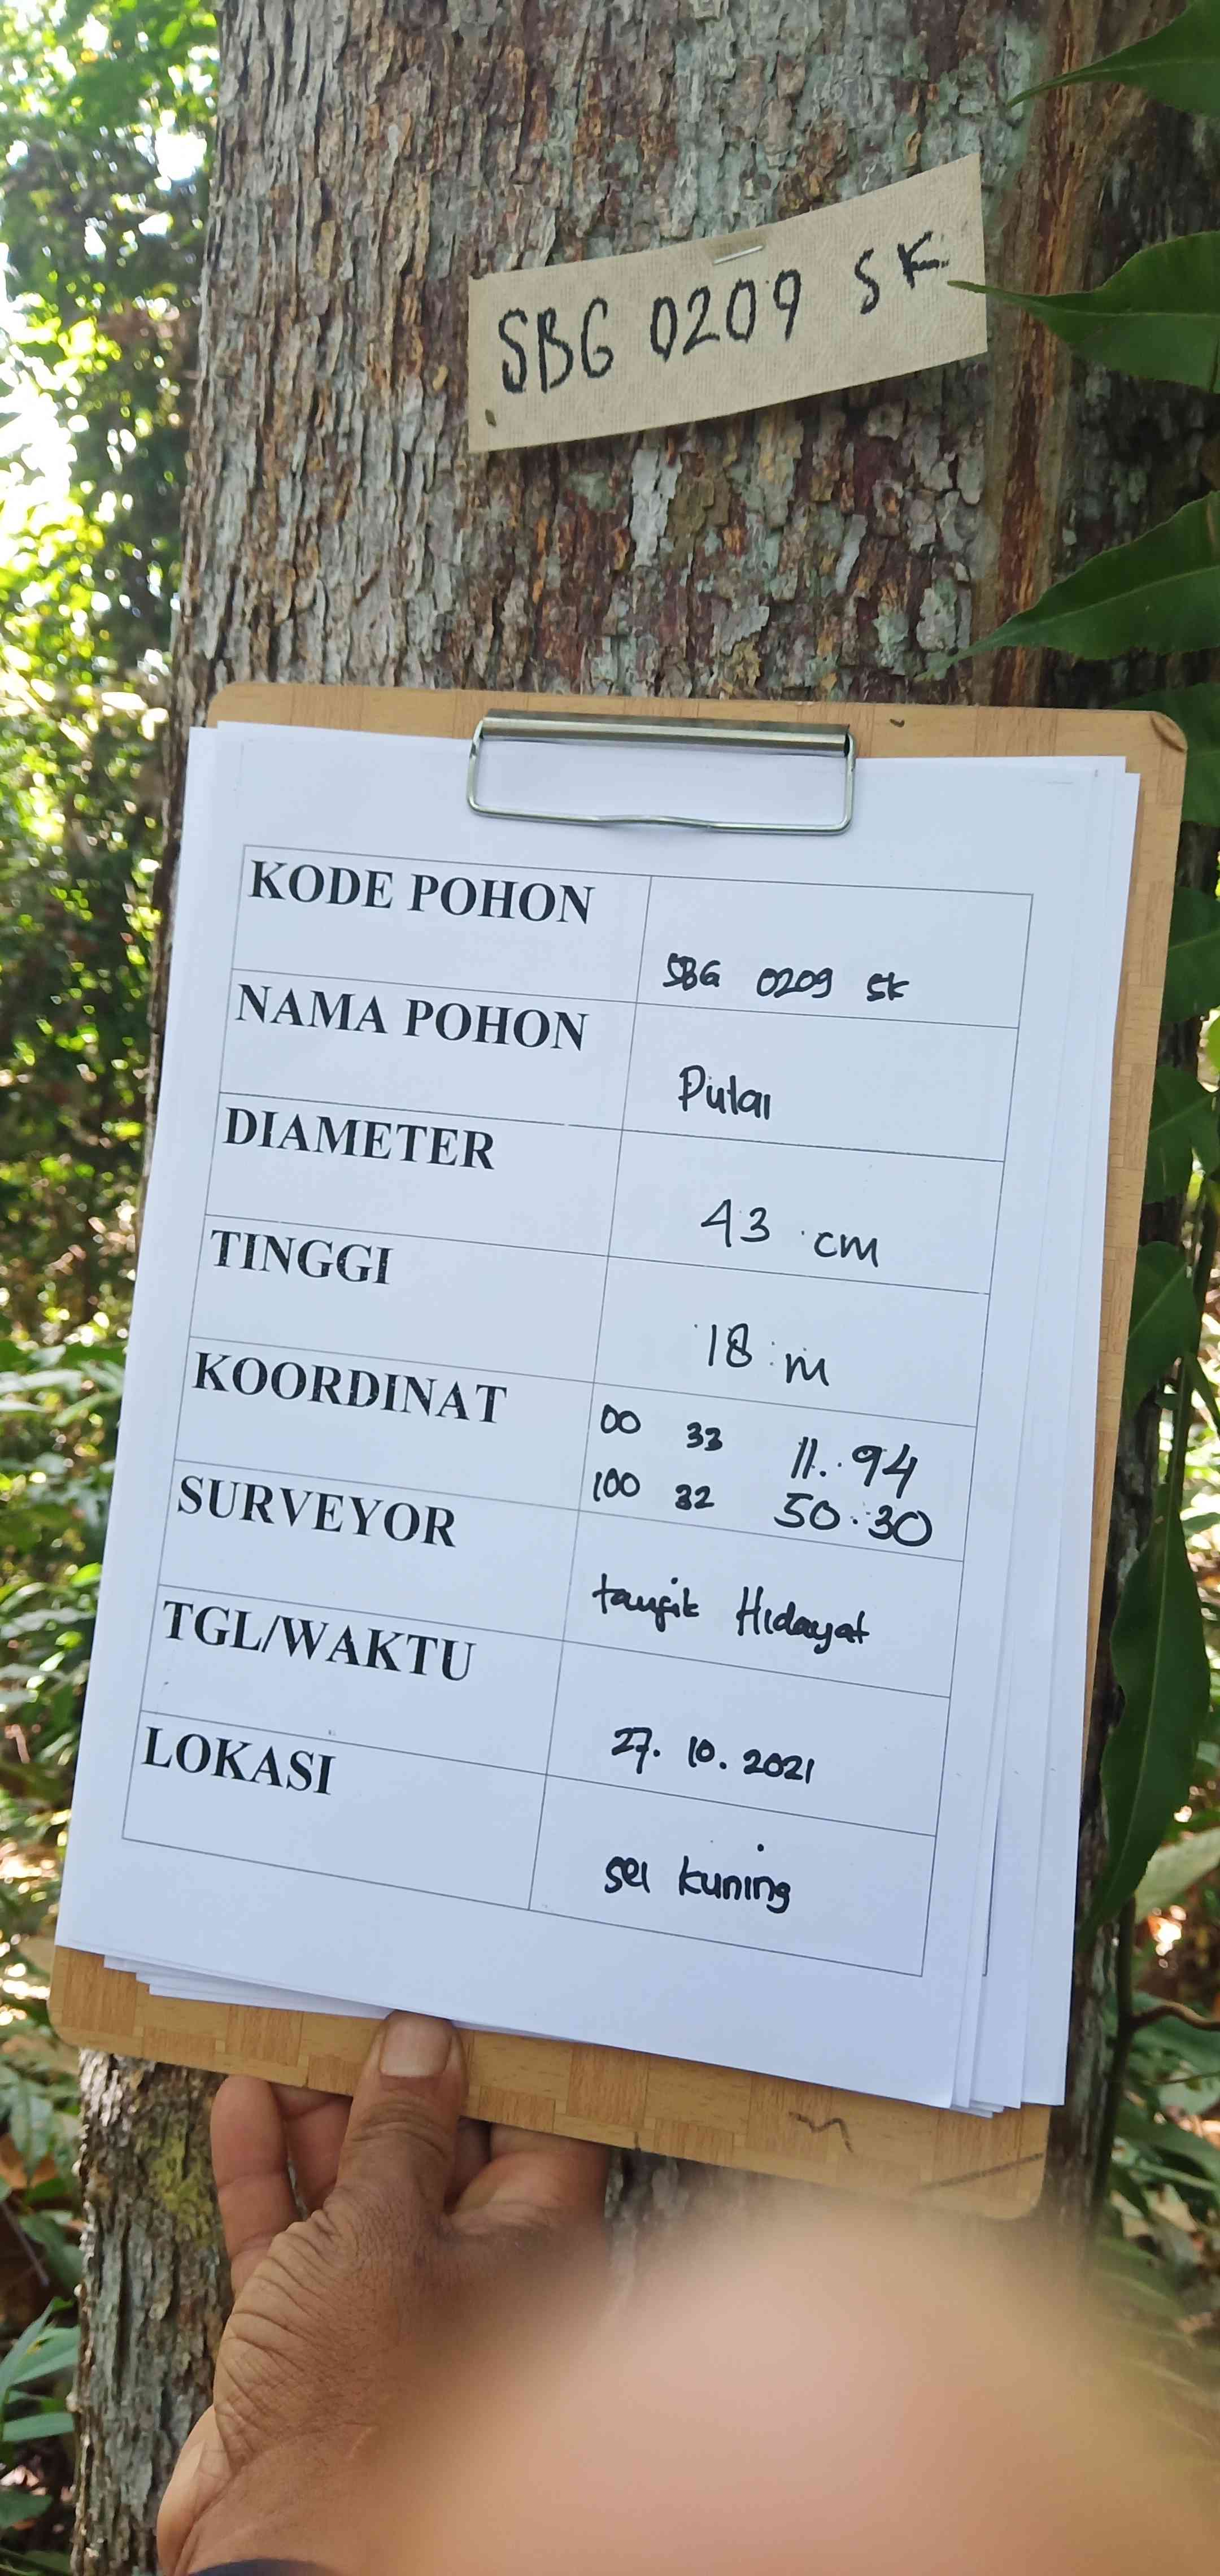 SBG 0209 SK
KODE POHON
SBG 0209 SK
NAMA POHON
Pulai
DIAMETER
43 cm
TINGGI
18 m
KOORDINAT
00 33 11.94
100 32 50.30
SURVEYOR
taufik Hidayat
TGL/WAKTU
27.10.2021
LOKASI
sei kuning